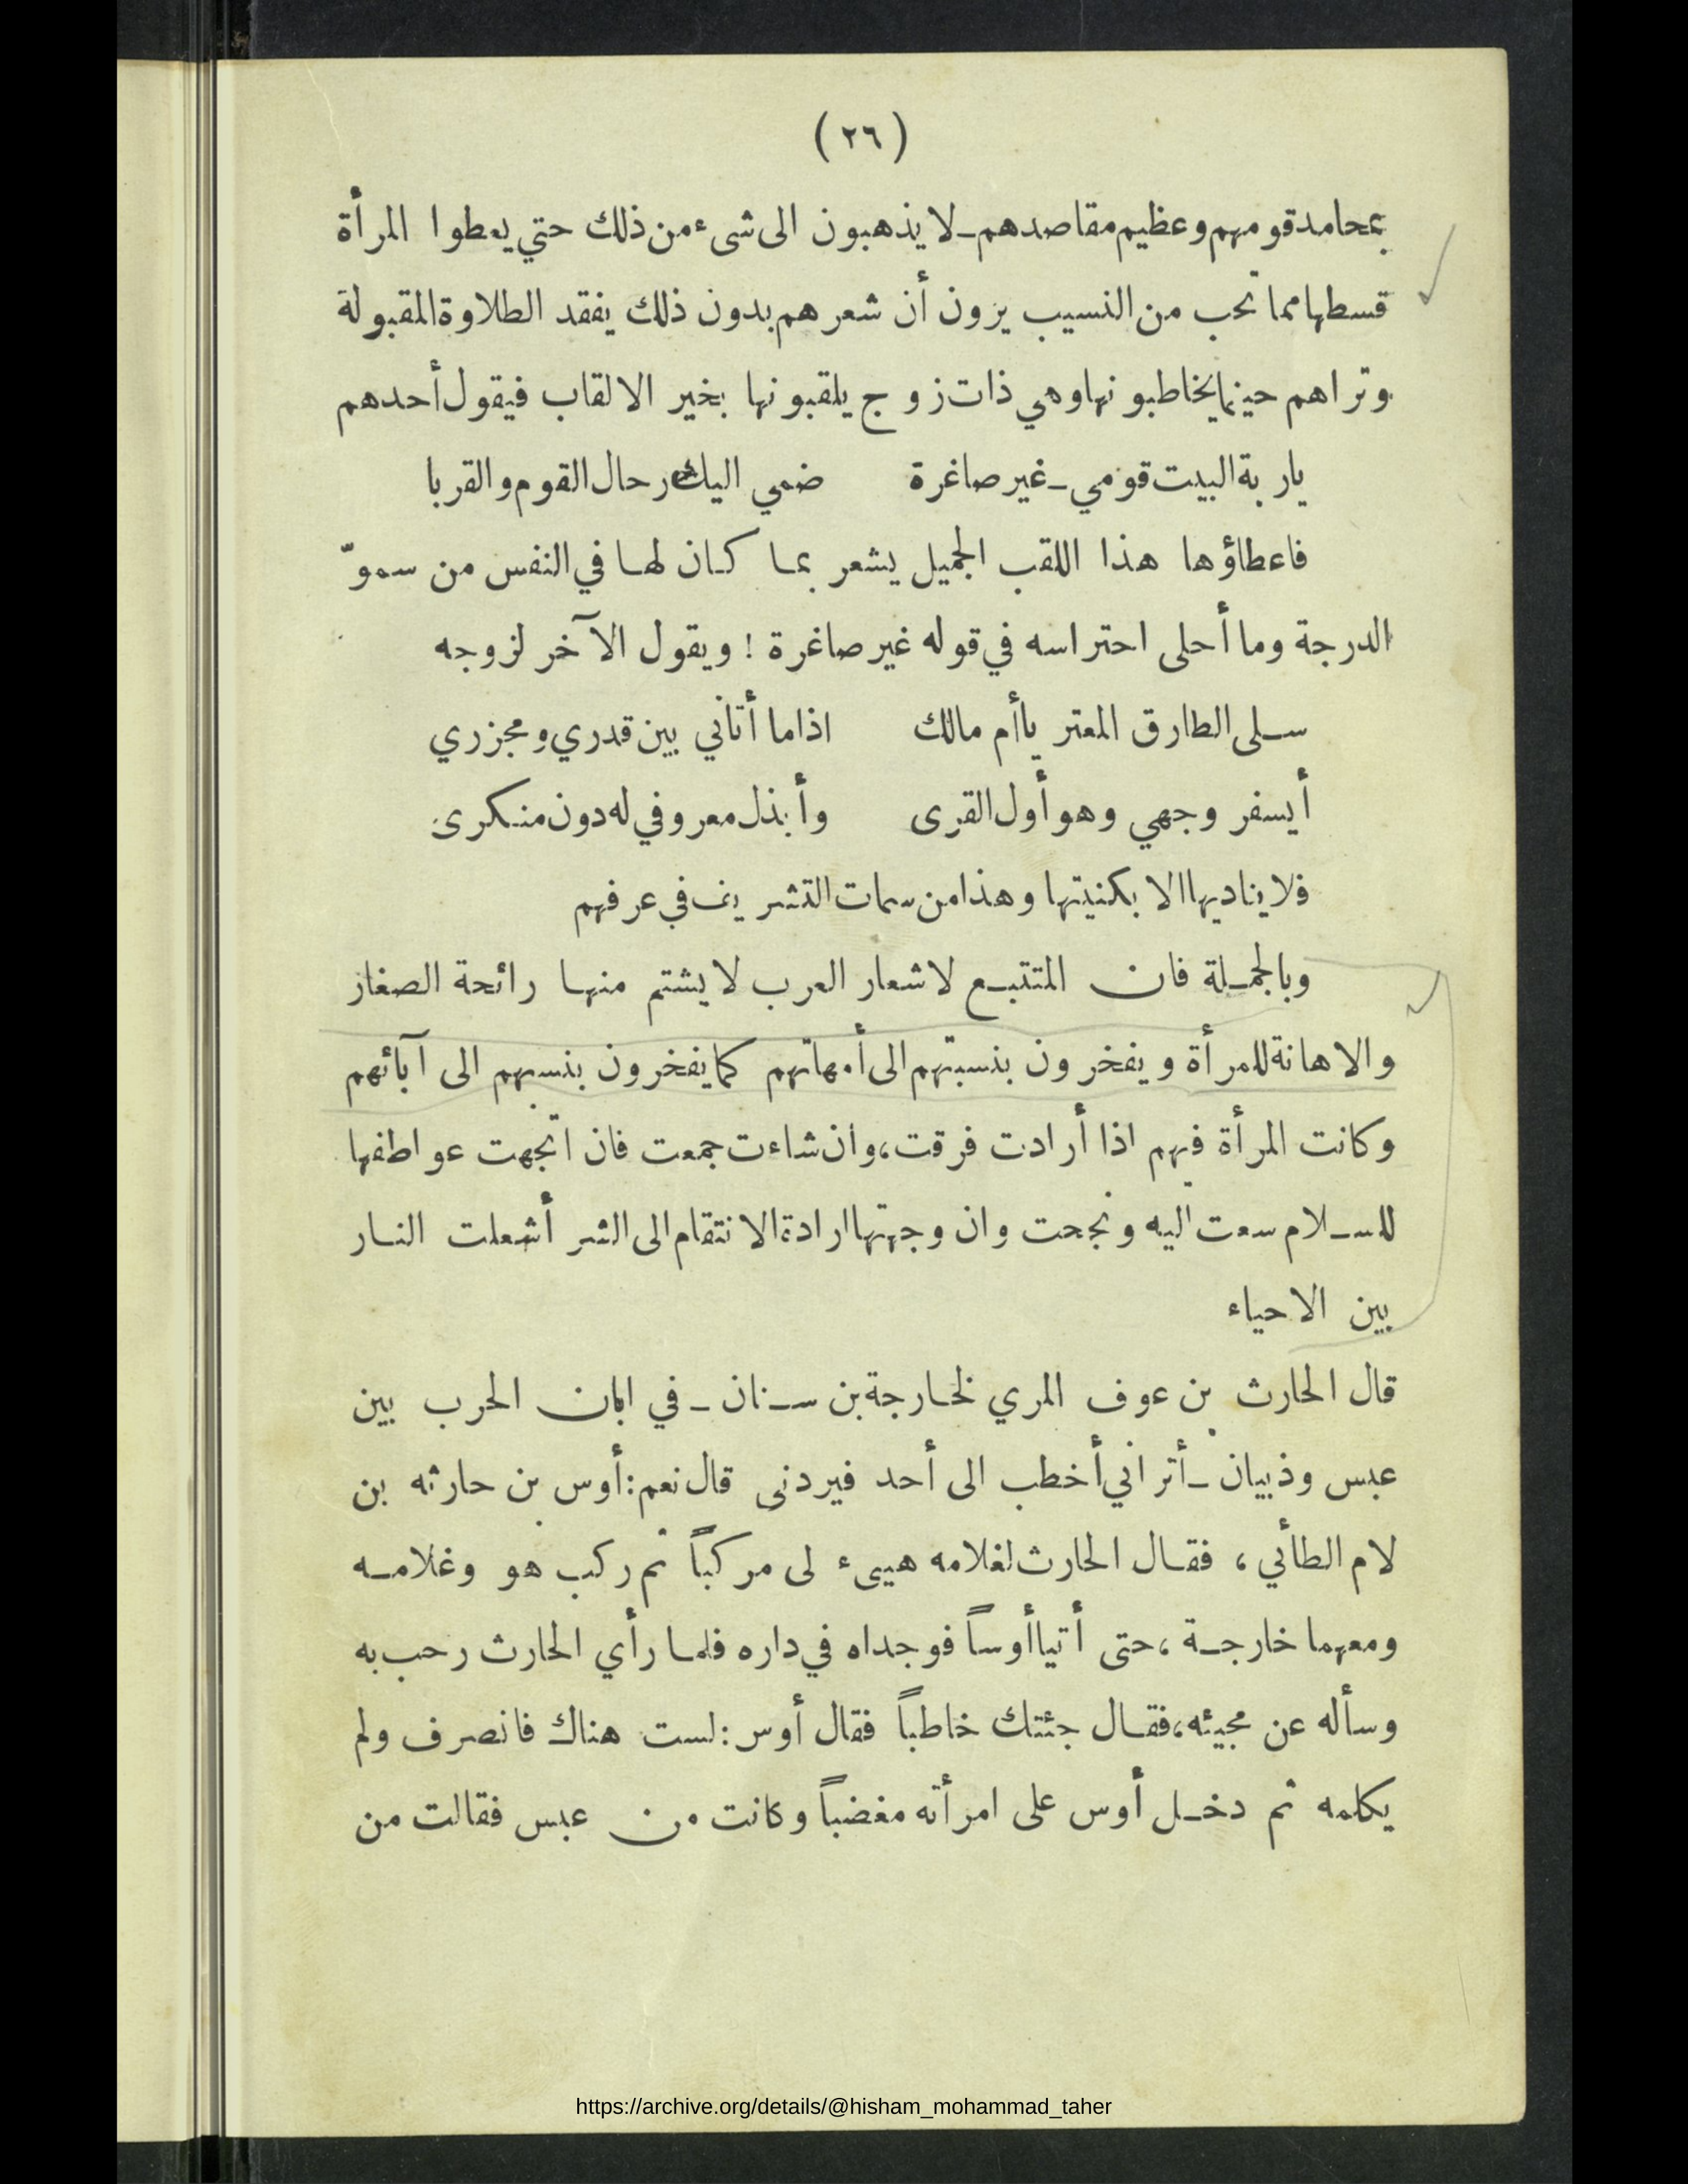 (٢٦)
بمحامد قومهم وعظيم مقاصدهم ـ لا يذهبون الى شىء من ذلك حتي يعطوا المرأة
قسطها مما تحب من النسيب يرون أن شعرهم بدون ذلك يفقد الطلاوة المقبولة
وتراهم حينما يخاطبونها وهي ذات زوج يلقبونها بخير الالقاب فيقول أحدهم
ياربة البيت قومي ـ غير صاغرة ضمي اليك رحال القوم والقربا
فاعطاؤها هذا اللقب الجميل يشعر بما كان لها في النفس من سموّ
الدرجة وما أحلى احتراسه في قوله غير صاغرة ! ويقول الآخر لزوجه
سلى الطارق المعتر ياأم مالك اذاما أتاني بين قدري ومجزري
أيسفر وجهي وهو أول القرى وأبذل معروفي له دون منكرى
فلا يناديها الا بكنيتها وهذا من سمات التشريف في عرفهم
وبالجملة فان المتتبع لاشعار العرب لا يشتم منها رائحة الصغار
والاهانة للمرأة ويفخرون بنسبتهم الى أمهاتهم كما يفخرون بنسبهم الى آبائهم
وكانت المرأة فيهم اذا أرادت فرقت، وان شاءت جمعت فان اتجهت عواطفها
للسلام سعت اليه ونجحت وان وجهتها ارادة الانتقام الى الشر أشعلت النار
بين الاحياء
قال الحارث بن عوف المري لخارجة بن سنان ـ في ابان الحرب بين
عبس وذبيان ـ أتراني أخطب الى أحد فيردنى قال نعم: أوس بن حارثه بن
لام الطائي ، فقال الحارث لغلامه هيىء لى مركباً ثم ركب هو وغلامه
ومعهما خارجة ، حتى أتيا أوساً فوجداه في داره فلما رأي الحارث رحب به
وسأله عن مجيئه، فقال جئتك خاطباً فقال أوس : لست هناك فانصرف ولم
يكلمه ثم دخل أوس على امرأته مغضباً وكانت من عبس فقالت من
https://archive.org/details/@hisham_mohammad_taher